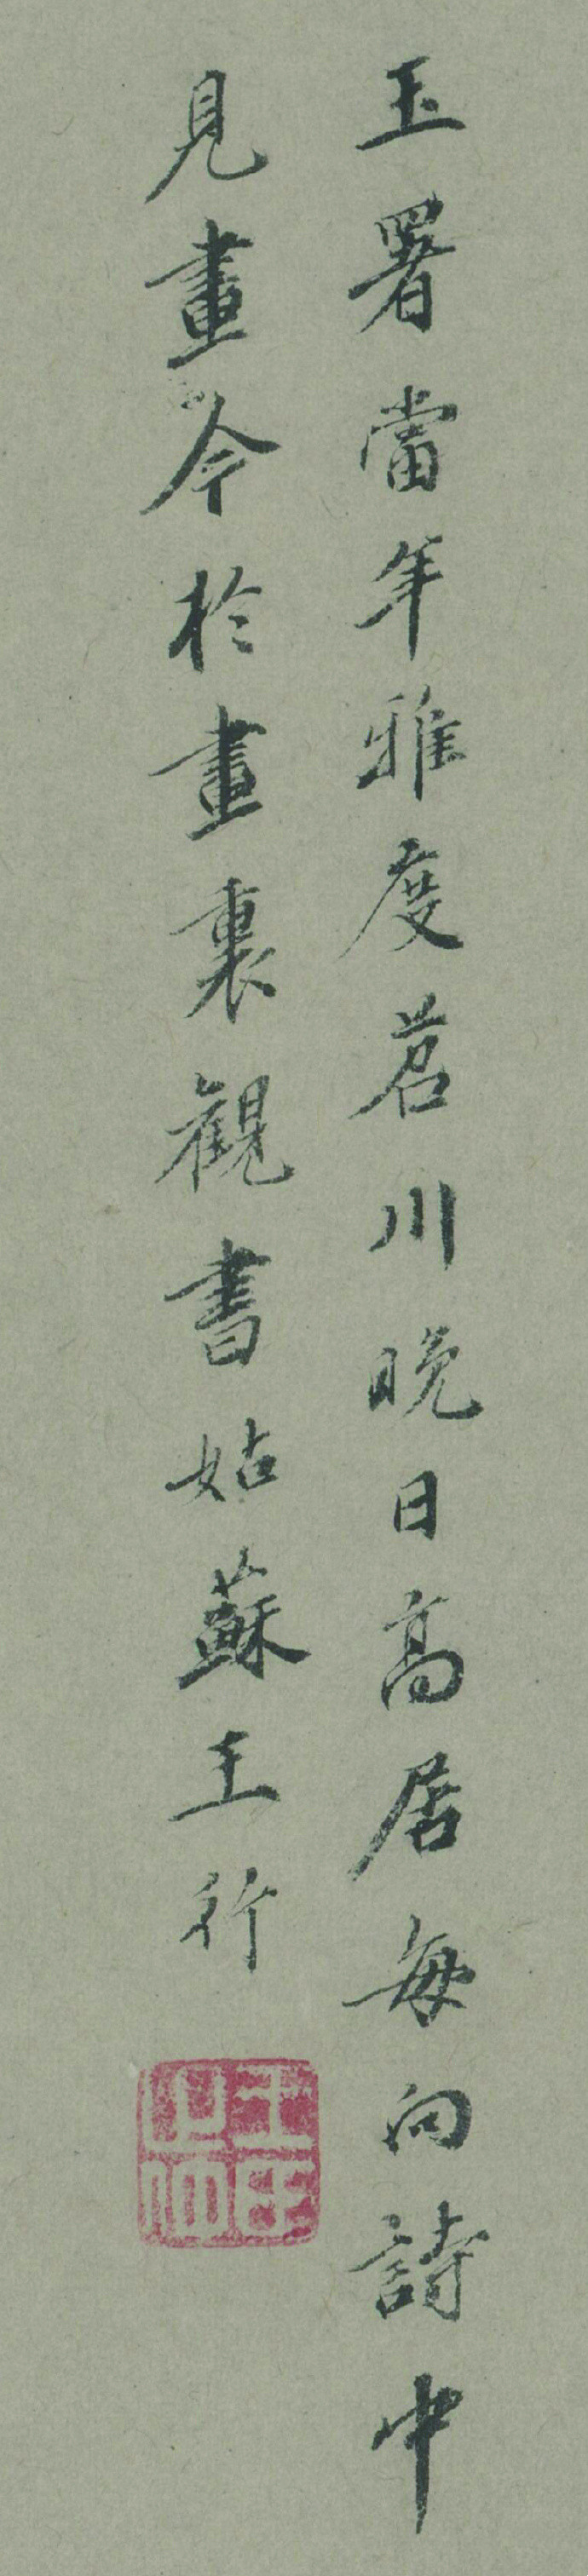 玉署當年雅度苕川晚日高居每向詩中
見畫今於畫裏觀書姑蘇王行